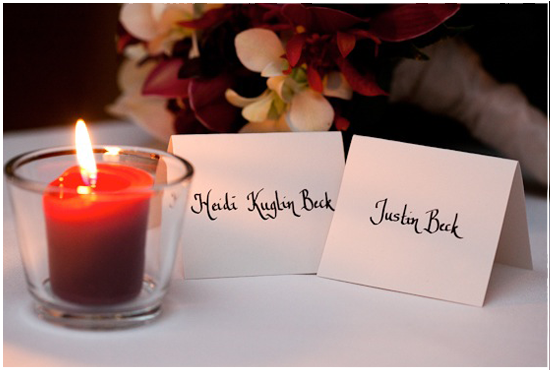 Heidi Kuglin Beck
Justin Beck